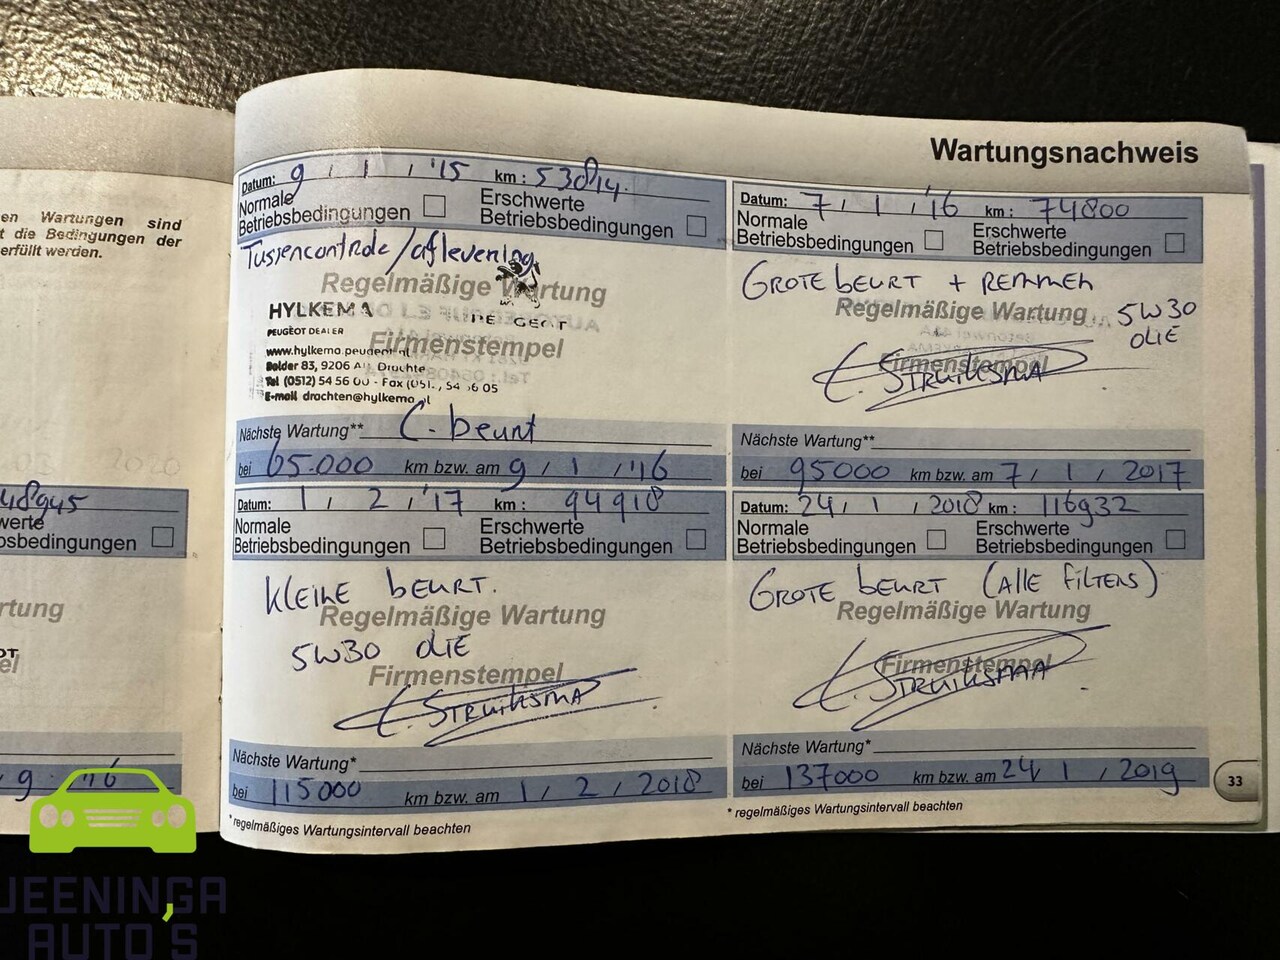 en Wartungen sind
t die Bedingungen der
erfüllt werden.
2020
48945
werte
osbedingungen
rtung
el
9 '16
Wartungsnachweis
Datum: 9 / 1 / '15 km : 53814.
Normale
Betriebsbedingungen
Erschwerte
Betriebsbedingungen
Tussencontrole/aflevering
Regelmäßige Wartung
HYLKEMA
PEUGEOT DEALER
Firmenstempel
www.hylkema.peugeot.nl
Bolder 83, 9206 A Drachte
Tel (0512) 54 56 00 - Fax (051 , 54 56 05
E-mail drachten@hylkema.nl
Nächste Wartung** C-beurt
bei 65.000 km bzw. am 9 / 1 / '16
Datum: 7 / 1 / '16 km : 74800
Normale
Betriebsbedingungen
Erschwerte
Betriebsbedingungen
GROTE BEURT + REMMEN
Regelmäßige Wartung
5W30
OLIE
Firmenstempel
STRUIKSMA
Nächste Wartung**
bei 95000 km bzw. am 7 / 1 / 2017
Datum: 1 / 2 / '17 km : 94918
Normale
Betriebsbedingungen
Erschwerte
Betriebsbedingungen
KLEINE BEURT.
Regelmäßige Wartung
5W30 OLIE
Firmenstempel
STRUIKSMA
Nächste Wartung*
bei 115000 km bzw. am 1 / 2 / 2018
* regelmäßiges Wartungsintervall beachten
Datum: 24 / 1 / 2018 km : 116932
Normale
Betriebsbedingungen
Erschwerte
Betriebsbedingungen
GROTE BEURT (ALLE FILTERS)
Regelmäßige Wartung
Firmenstempel
STRUIKSMA
Nächste Wartung*
bei 137000 km bzw. am 24 / 1 / 2019
* regelmäßiges Wartungsintervall beachten
33
JEENINGA
AUTO'S